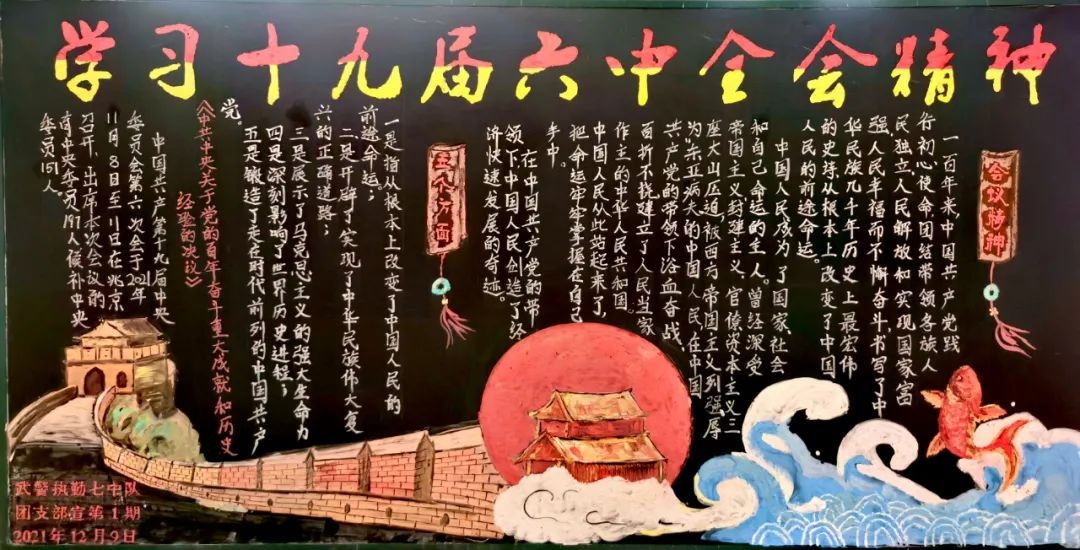 学习十九届六中全会精神
会议精神
一百年来,中国共产党践
行初心使命,团结带领各族人
民独立、人民解放和实现国家富
强、人民幸福而不懈奋斗,书写了中
华民族几千年历史上最宏伟
的史诗,从根本上改变了中国
人民的前途命运。
中国人民成为了国家、社会
和自己命运的主人。曾经深受
帝国主义、封建主义、官僚资本主义三
座大山压迫,被西方帝国主义列强辱
为东亚病夫的中国人民,在中国
共产党的带领下,浴血奋战、
百折不挠,建立了人民当家
作主的中华人民共和国。
中国人民从此站起来了,
把命运牢牢掌握在自己
手中。
在中国共产党的带
领下,中国人民创造了经
济快速发展的奇迹。
五个方面
一是指从根本上改变了中国人民的
前途命运;
二是开辟了实现了中华民族伟大复
兴的正确道路;
三是展示了马克思主义的强大生命力
四是深刻影响了世界历史进程;
五是锻造了走在时代前列的中国共产
党。
《中共中央关于党的百年奋斗重大成就和历史
经验的决议》
中国共产第十九届中央
委员会第六次会于2021年
11月8日至11日在北京
召开,出席本次会议的
有中央委员197人,候补中央
委员151人。
武警执勤七中队
团支部宣第1期
2021年12月9日